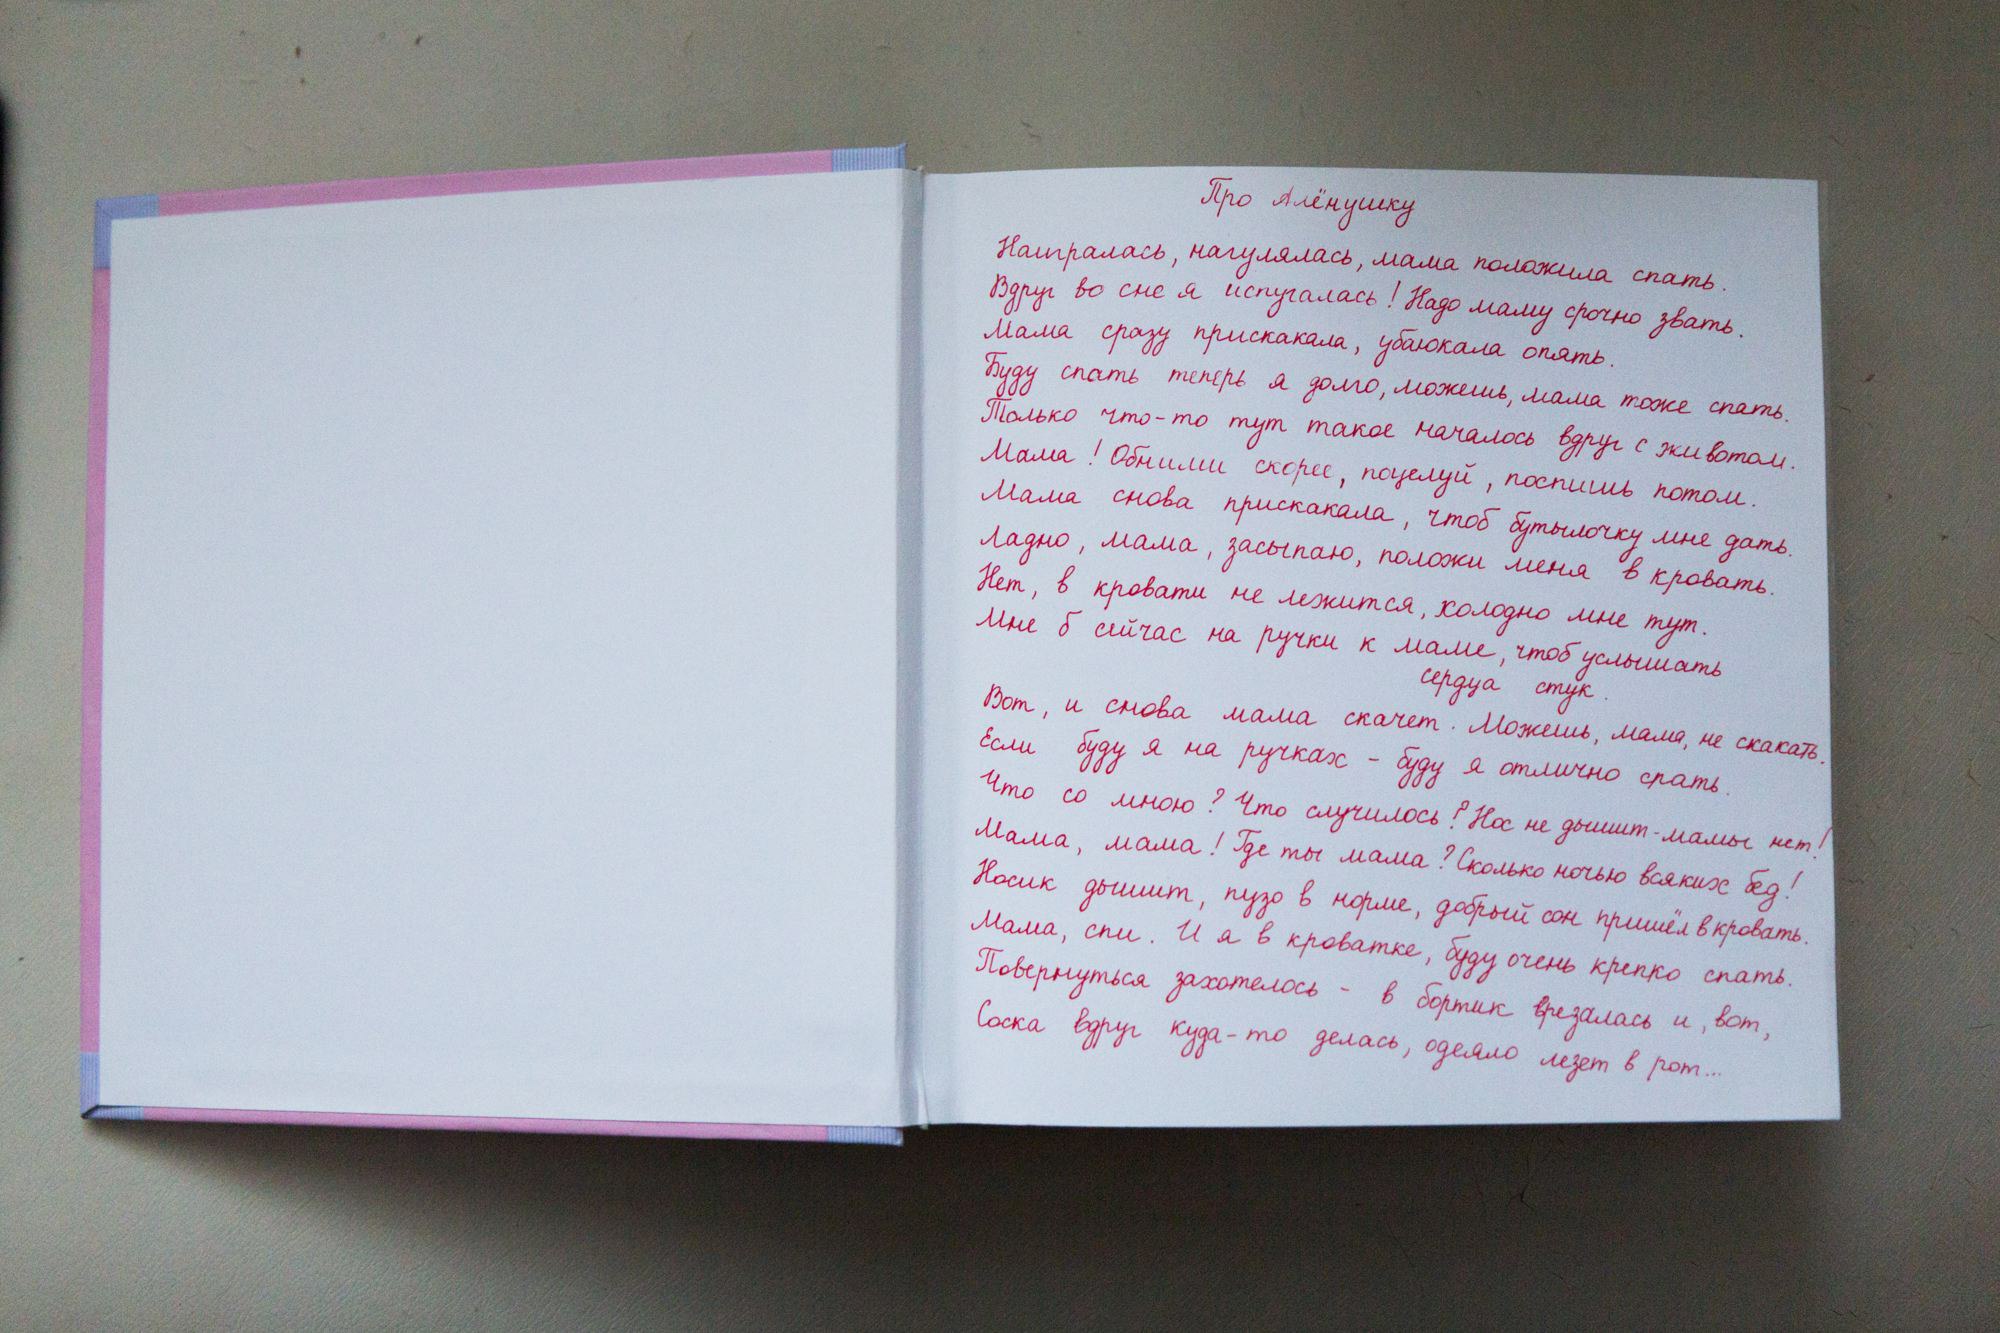 Про Алёнушку
Наигралась, нагулялась, мама положила спать.
Вдруг во сне я испугалась! Надо маму срочно звать.
Мама сразу прискакала, убаюкала опять.
Буду спать теперь я долго, можешь, мама тоже спать.
Только что-то тут такое началось вдруг с животом.
Мама! Обними скорее, поцелуй, поспишь потом.
Мама снова прискакала, чтоб бутылочку мне дать.
Ладно, мама, засыпаю, положи меня в кровать.
Нет, в кровати не лежится, холодно мне тут.
Мне б сейчас на ручки к маме, чтоб услышать
сердца стук.
Вот, и снова мама скачет. Можешь, мама, не скакать.
Если буду я на ручках - буду я отлично спать.
Что со мною? Что случилось? Нос не дышит-мамы нет!
Мама, мама! Где ты мама? Сколько ночью всяких бед!
Носик дышит, пузо в норме, добрый сон пришёл в кровать.
Мама, спи. И я в кроватке, буду очень крепко спать.
Повернуться захотелось - в бортик врезалась и, вот,
Соска вдруг куда-то делась, одеяло лезет в рот...